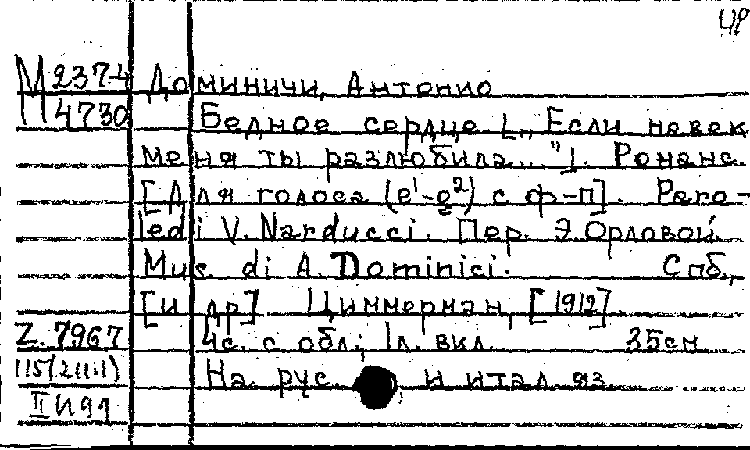 М 2374 Доминичи, Антонио
4730 Бедное сердце [„Если навек
меня ты разлюбила..."]. Романс.
[Для голоса (e¹-g²) с ф-п]. Paro-
le di V. Narducci. Пер. Э. Орловой.
Mus. di A. Dominici. Спб.,
[и др.] Циммерман, [1912]
Z. 7967 4с. с обл.; 1л. вкл. 35см
115(2111:1) На рус. и итал. яз.
II И 91